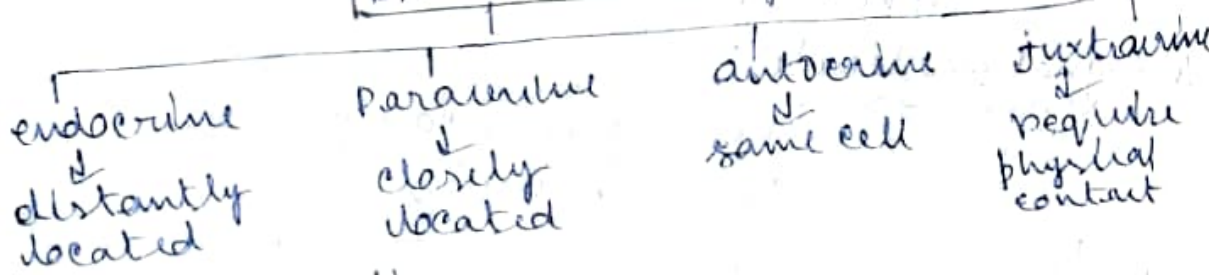 endocrine
↓
distantly
located
Paracrine
↓
closely
located
autocrine
↓
same cell
Juxtracrine
↓
require
physical
contact